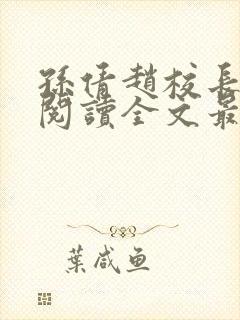 孫倩趙校長
閱讀全文最
葉咸魚